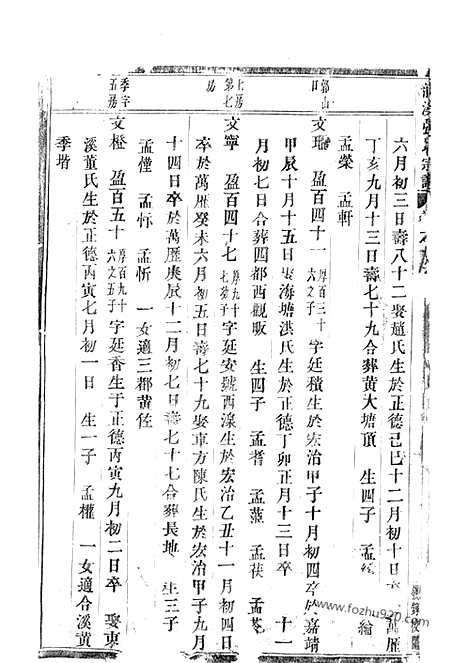 六月初三日壽八十二娶趙氏生於正德己巳十二月初十日卒 萬曆
丁亥九月十三日壽七十九合葬黃大塘頂 生四子 孟 綸
孟榮 孟軒
郭山
文瑞 盈百四十一 厚百三十六之子 字廷積生於宏治甲子十月初四卒於嘉靖
甲辰十月十五日娶海塘洪氏生於正德丁卯正月十三日卒 十一
月初七日合葬四都西觀畈 生四子 孟耆 孟 孟 孟
上房第七房
文寧 盈百四十七 厚九十七幼子 字廷安號西 生於宏治乙丑十一月初四日
卒於萬曆癸未六月初五日壽七十九娶車方陳氏生於宏治甲子九月
十四日卒於萬曆庚辰十二月初七日壽七十七合葬長地 生三子
孟僅 孟 孟忻 一女適三都黃
季字五房
文橙 盈百五十 厚百九十六之五子 字廷香生于正德丙寅九月初二日卒 娶東
溪董氏生於正德丙寅七月初一日 生一子 孟權 一女適合溪黃
季
www.fozhu920.com